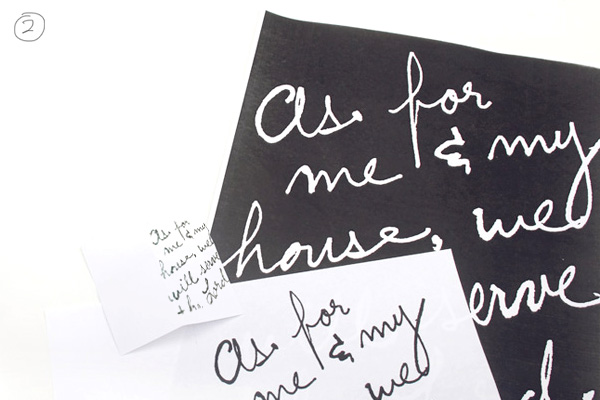 2
as for
me & my
house, we
serve
as for
me & my
house, we
will serve
the Lord
as for
me & my
we